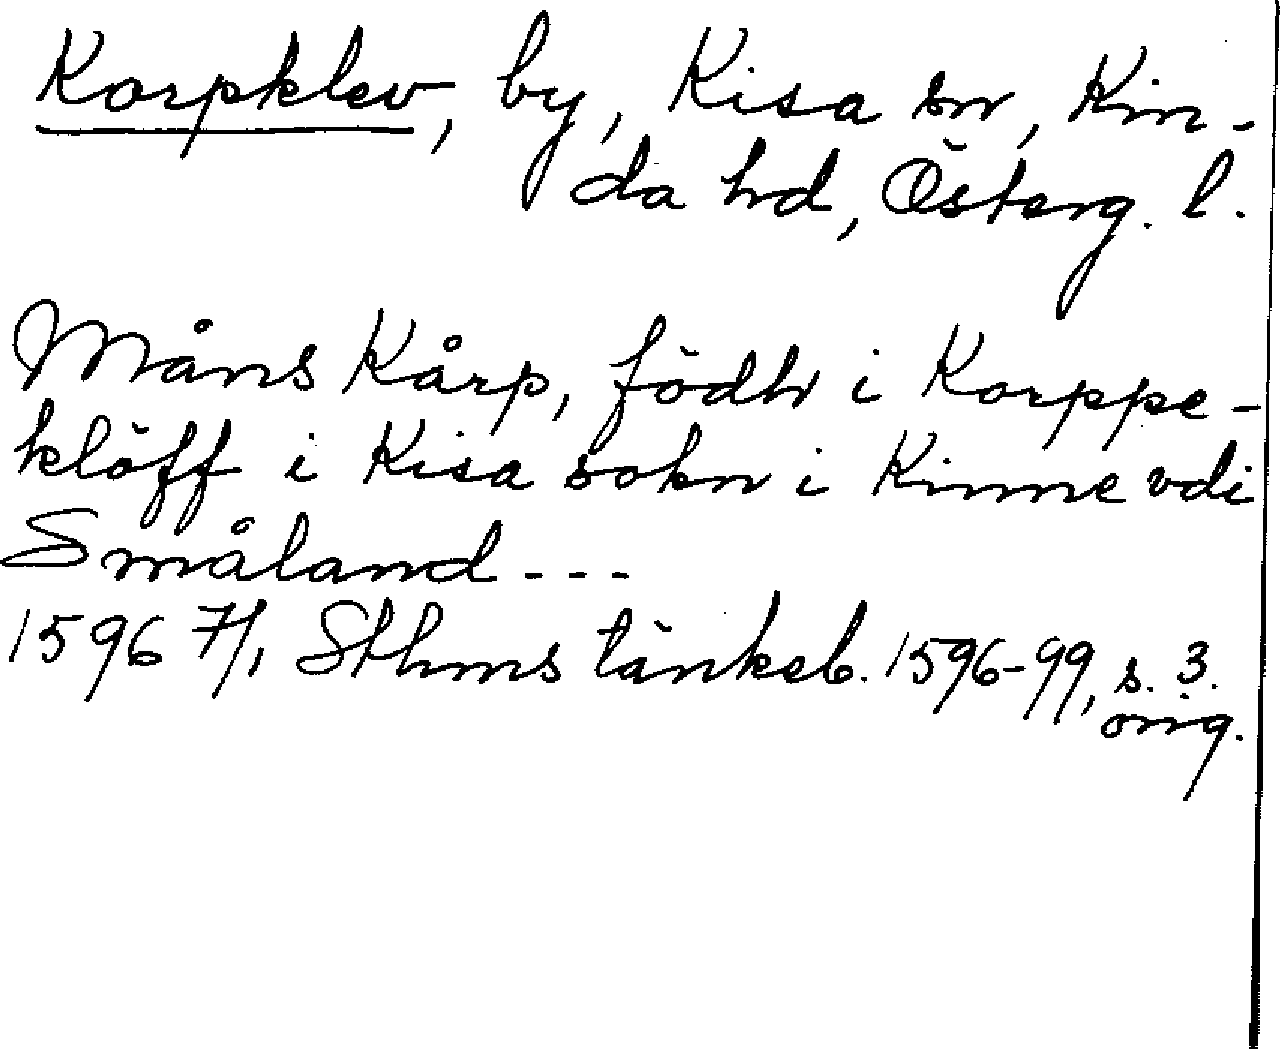 Korpklev, by, Kisa sn, Kin-
da hd, Österg. l.
Måns Kårp, födh i Korppe-
klöff i Kisa sokn i Kinne vdi
Småland - - -
1596 7/1, Sthms tänkeb. 1596-99, s. 3.
orig.